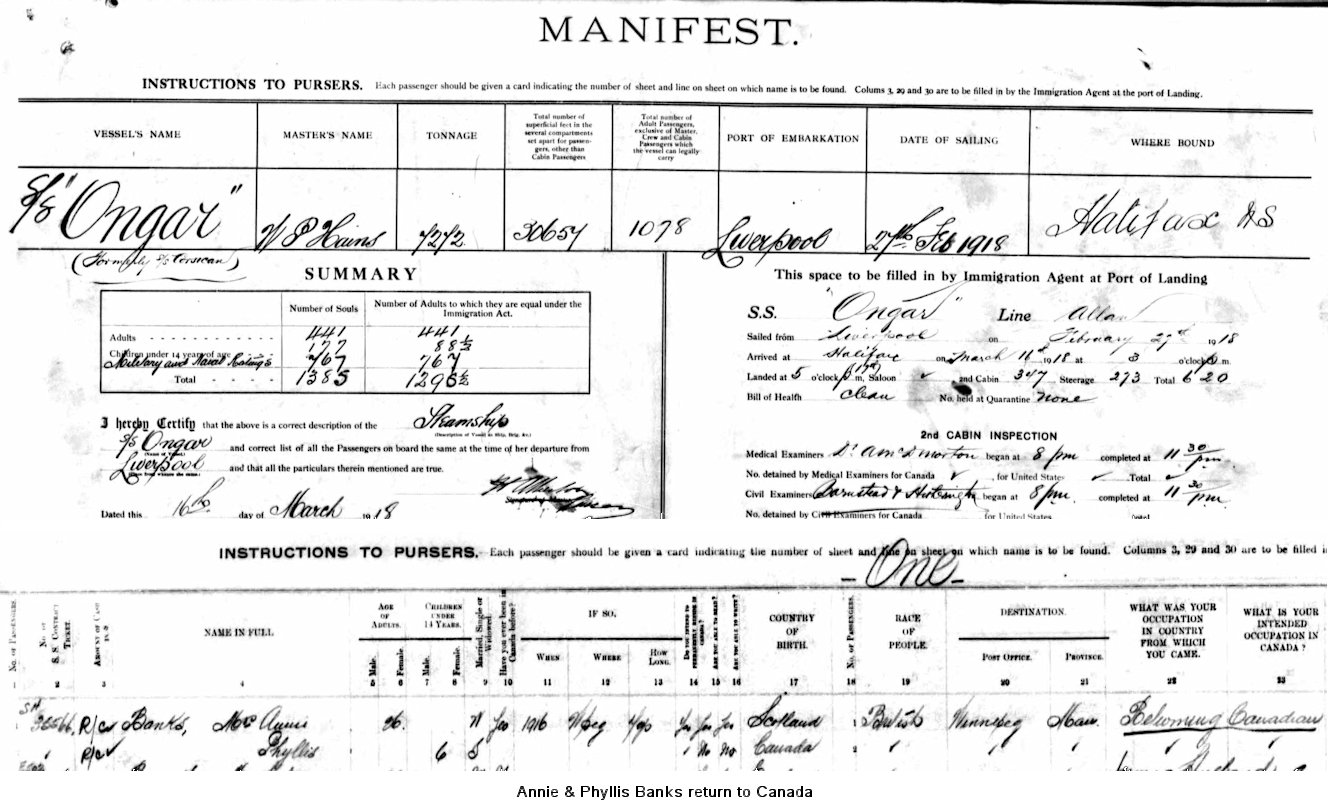 MANIFEST.
INSTRUCTIONS TO PURSERS. Each passenger should be given a card indicating the number of sheet and line on sheet on which name is to be found. Colums 3, 29 and 30 are to be filled in by the Immigration Agent at the port of Landing.
VESSEL'S NAME MASTER'S NAME TONNAGE Total number of superficial feet in the several compartments set apart for passengers, other than Cabin Passengers Total number of Adult Passengers, exclusive of Master, Crew and Cabin Passengers which the vessel can legally carry PORT OF EMBARKATION DATE OF SAILING WHERE BOUND
S/S "Ongar" W P Hains 7272 30654 1078 Liverpool 27th Feb 1918 Halifax NS
(Formerly S/S Corsican)
SUMMARY
Number of Souls Number of Adults to which they are equal under the Immigration Act.
Adults 441 441
Children under 14 years of age 177 88½
Military and Naval Ratings 767 767
Total 1385 1296½
I hereby Certify that the above is a correct description of the Steamship
(Description of Vessel as Ship, Brig, &c.)
S/S Ongar and correct list of all the Passengers on board the same at the time of her departure from
(Name of Vessel)
Liverpool and that all the particulars therein mentioned are true.
Dated this 16th day of March 1918
This space to be filled in by Immigration Agent at Port of Landing
S.S. "Ongar" Line Allan
Sailed from Liverpool on February 27th 1918
Arrived at Halifax on March 16th 1918 at 3 o'clock p. m.
Landed at 5 o'clock p. m, Saloon ✓ 2nd Cabin 347 Steerage 273 Total 620
Bill of Health Clean No. held at Quarantine None
2nd CABIN INSPECTION
Medical Examiners began at 8 pm completed at 11 30 pm.
No. detained by Medical Examiners for Canada ✓, for United States ✓ Total ✓
Civil Examiners Barnstead & began at 8 pm. completed at 11 30 pm
No. detained by Civil Examiners for Canada for United States Total
INSTRUCTIONS TO PURSERS. Each passenger should be given a card indicating the number of sheet and line on sheet on which name is to be found. Columns 3, 29 and 30 are to be filled in
- One -
No. of Passengers. No. of S.S. Contract Ticket. Amount of Cash in $ NAME IN FULL AGE OF ADULTS. Male. Female. CHILDREN UNDER 14 YEARS. Male. Female. Married, Single or Widowed. Have you ever been in Canada before? IF SO. WHEN WHERE HOW LONG. Do you intend to permanently reside in Canada? Are you able to read? Are you able to write? COUNTRY OF BIRTH. No. of Passengers. RACE OF PEOPLE. DESTINATION. POST OFFICE. PROVINCE. WHAT WAS YOUR OCCUPATION IN COUNTRY FROM WHICH YOU CAME. WHAT IS YOUR INTENDED OCCUPATION IN CANADA?
1 2 3 4 5 6 7 8 9 10 11 12 13 14 15 16 17 18 19 20 21 22 23
Banks, Mrs Annie 26 Yes 1916 Wpeg Yes Yes Yes Scotland British Winnipeg Man. Returning Canadian
Phyllis 6 S No No Canada
Annie & Phyllis Banks return to Canada